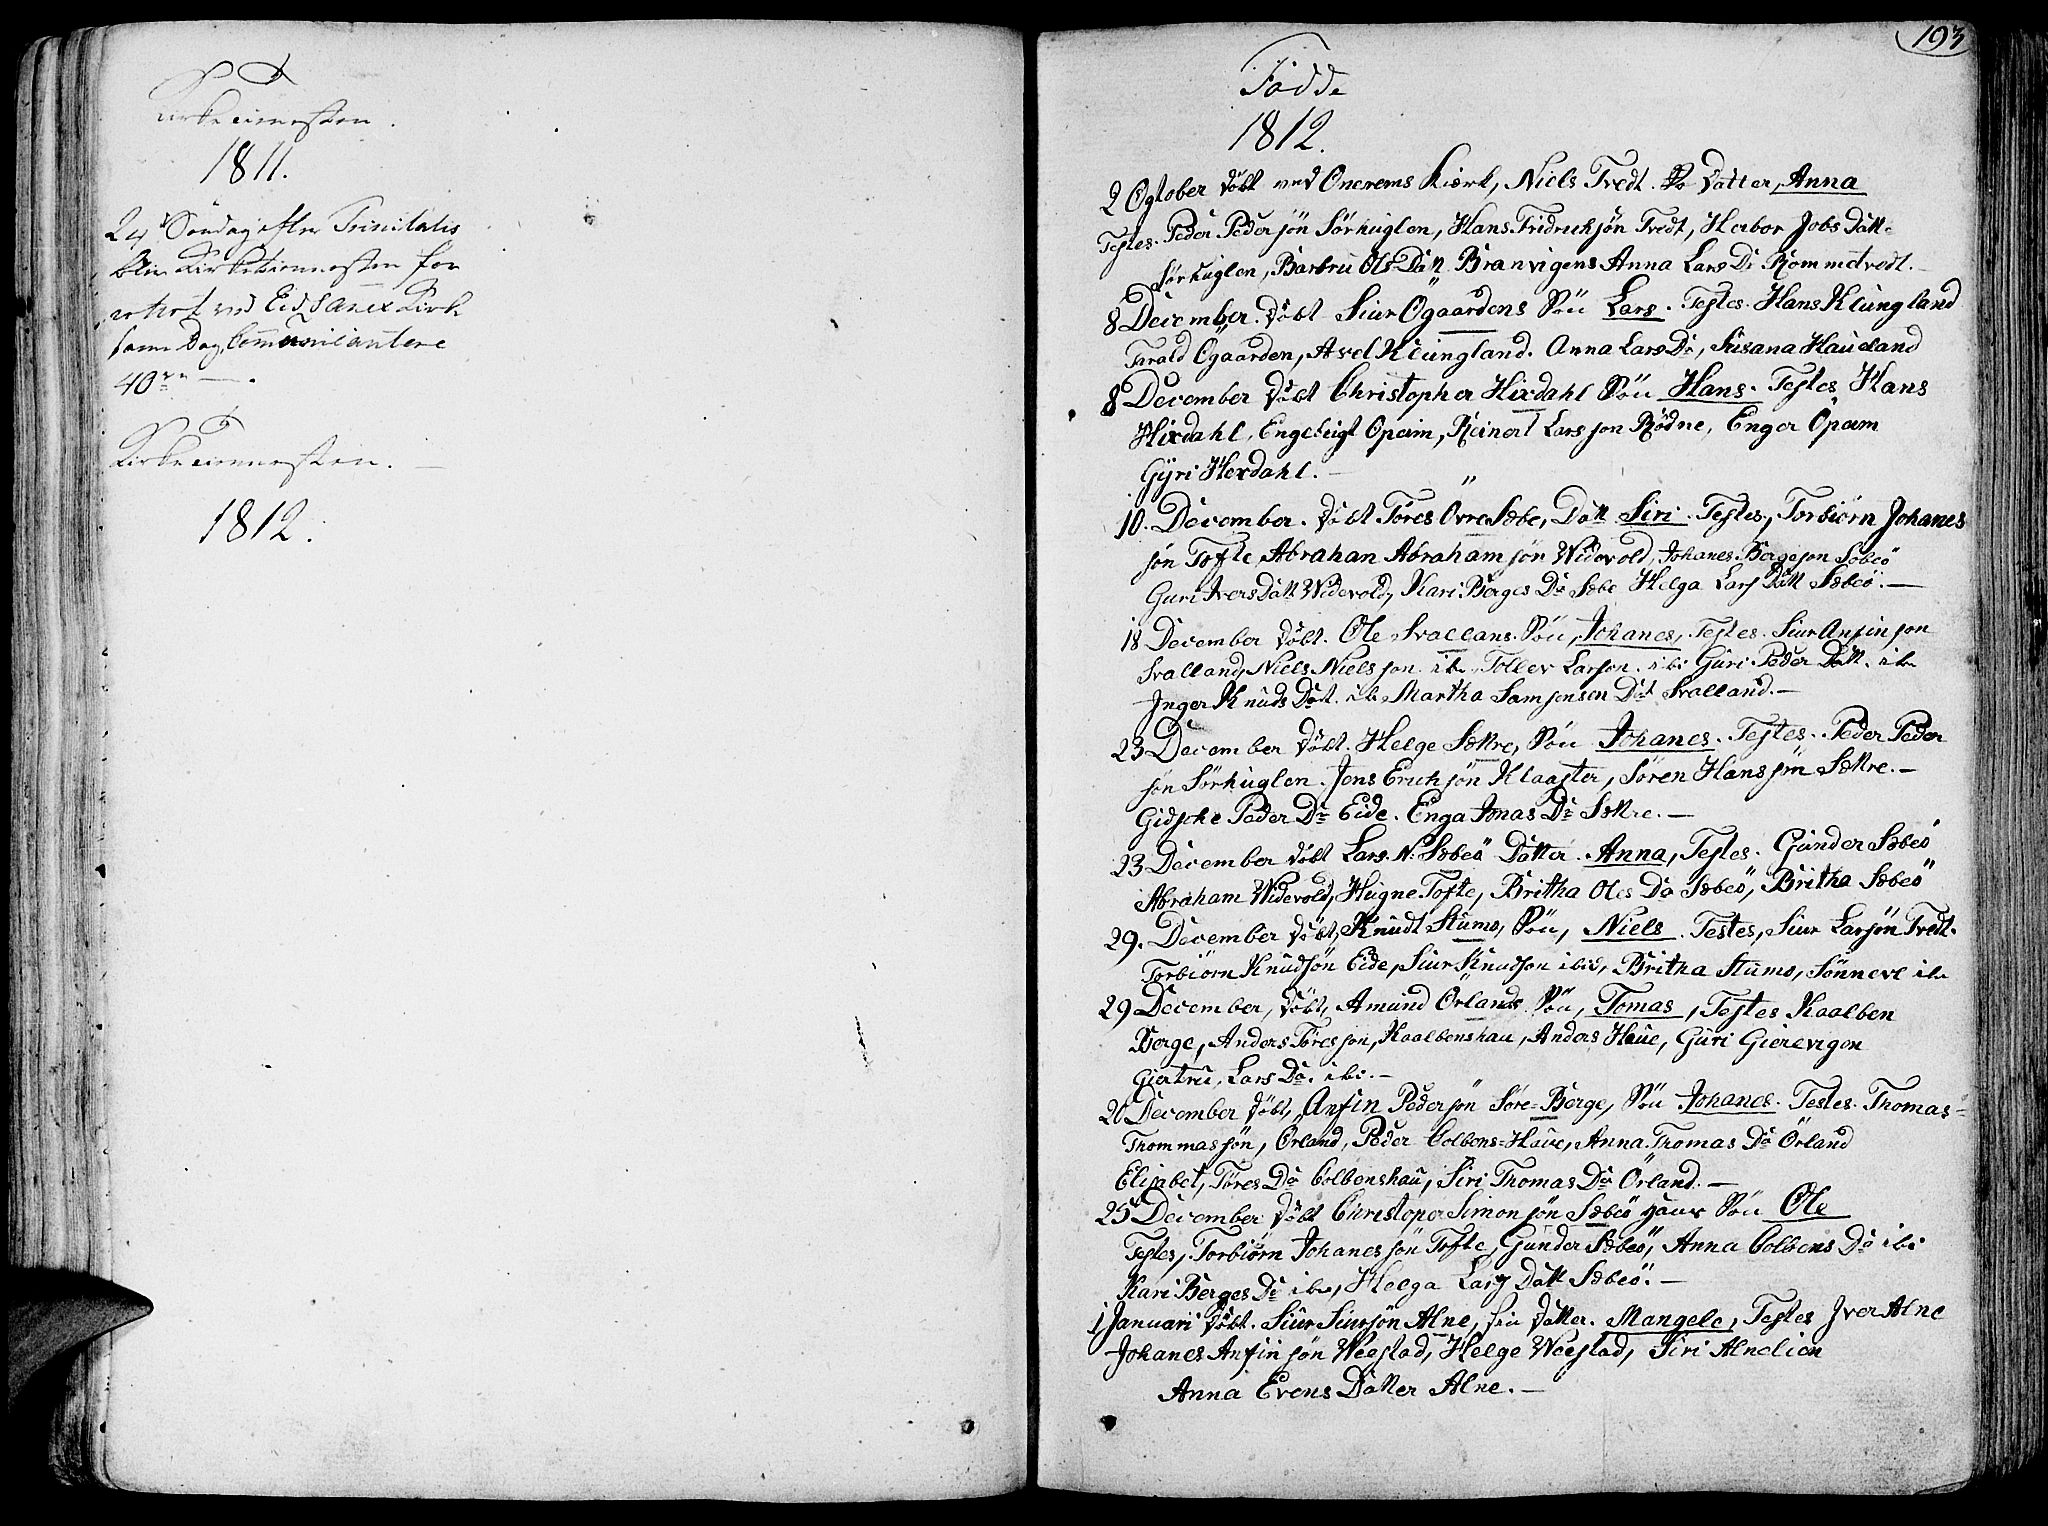 Kirketienesten.
1811.
24d Søndag efter Trinitatis
blev Kirketienesten for
rettet ved Eids anex Kirk
samme Dag, Communicantere
40
Kirketiennesten.
1812.
193
Födde
1812.
2 October döbt ved Onerems Kiærk, Niels Tvedt. Datter, Anna
Testes. Peder Pedersön Sörhuglen, Hans Fridrichsön Tvedt, Herbor Jobs Datt
Sörhuglen, Barbru Ols Datt Branvigens Anna Lars Dr Rommetvedt.
8 December. döbt Siur Ögaardens Sön Lars. Testes. Hans Klungland
Tarald Ögaarden, Axel Klungland. Anna Lars Dr, Susana Haueland
8 December döbt Christopher Hixdahl Sön Hans. Testes Hans
Hixdahl, Engebrigt Opeim, Reinert Larsson Rödne, Enger Opeim
Gÿri Hexdahl.
10. December. döbt Töres Övre Sæbe, Datt Siri. Testes, Torbiörn Johanes
sön Tofte, Abrahan Abrahamsön Widevold, Johanes Bergeson Sæbeö
Guri Ivers Datt Widevold, Kari Berges Dr Sæbe Helga Lars Datt Sæbeö.
18 December döbt. Ole Svallans Sön, Johanes, Testes. Siur Anfinson
Svalland, Niels Nielsson ibi Tollev Larson ibi Guri Peder Datt. ibi
Inger Knuds Datt. ibi Martha Samsonsen Dat Svalland.
23 December döbt. Helge Sætre, Sön Johanes. Testes. Peder Peder
sön Sörhuglen. Jens Erichsön Klaaster, Sören Hanssön Sætre.
Gidske Peder Dr Eide. Enga Jonas Dr Sætre.
23 December döbt Lars N. Sæbeö Datter. Anna, Testes. Gunder Sæbeö
Abraham Widevold, Hugne Tofte, Britha Oles Dr Sæbeö, Britha Sæbeö
29. December döbt, Knudt Stumo, Sön, Niels. Testes, Siur Larsön Tvedt.
Torbiörn Knudsön Eide, Siur Knudson ibid, Britha Stumo, Sönneve ibi
29 December, döbt, Amund Örlands Sön, Tomas, Testes Kaalben
Berge, Anders Töresson, Kaalbenshau, Anders Haue, Guri Gierevigen
Giertru, Lars Dr. ibi.
20 December döbt, Anfin Pedersön Söre=Berge, Sön Johanes. Testes. Thomas=
Thommassön, Örland, Peder Colbens=Haue, Anna Thomas Dr Örland
Elisabet, Töres Dr Colbenshau, Siri Thomas Dr Örland.
25 December döbt Christoper Simonsön Sæbeö hans Sön Ole
Testes, Torbiörn Johanessön Tofte, Gunder Sæbeö, Anna Colbens Dr ibi
Kari Berges Dr ibi, Helga Lars Datt Sæbeö.
1 Januari döbt. Siur Siursön Alne, sin Datter. Mangele, Testes Iver Alne
Johanes Anfinsön Weestad, Helge Weestad, Siri Alnelien
Anna Evens Datter Alne.